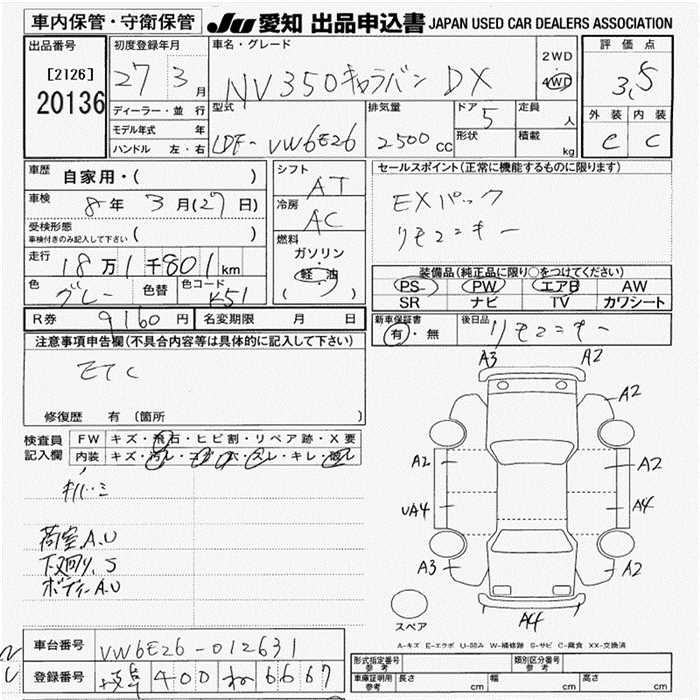 車内保管・守衛保管 JU 愛知 出品申込書 JAPAN USED CAR DEALERS ASSOCIATION
出品番号
[2126]
20136
初度登録年月
27 3 月
ディーラー・並 行
モデル年式 年
ハンドル 左・右
車名・グレード
NV350キャラバン DX
2WD
4WD
型式
LDF-VW6E26
排気量
2500 cc
ドア 5
形状
定員 人
積載 kg
評価点
3.5
外装 内装
C C
車歴 自家用・( )
車検 8年 3月(27日)
受検形態
車検付きのみ記入して下さい ( )
走行 18万1千801km
色 グレー 色替 色コード K51
シフト
AT
冷房
AC
燃料
ガソリン・
軽油
( )
セールスポイント(正常に機能するものに限ります)
EXパック
リモコンキー
装備品(純正品に限り○をつけてください)
PS PW エアB AW
SR ナビ TV カワシート
R券 9160円 名変期限 月 日
新車保証書
有・無
後日品 リモコンキー
注意事項申告欄(不具合内容等は具体的に記入して下さい)
ETC
修復歴 有 (箇所 )
検査員
記入欄
FW キズ・飛石・ヒビ割・リペア跡・X要
内装 キズ・汚レ・コゲ・穴・スレ・キレ・破レ
荷室A.U
下廻り.S
ボディーA.U
A3 A2
A2
A2 A2
UA4 A4
A3 A2
A4
スペア
A-キズ E-エクボ U-凹み W-補修跡 S-サビ C-腐食 XX-交換済
車台番号 VW6E26-012631
登録番号 岐阜 400 ね 6667
形式指定番号
参考
類別区分番号
参考
車庫証明用
参考
長さ cm 幅 cm 高さ cm